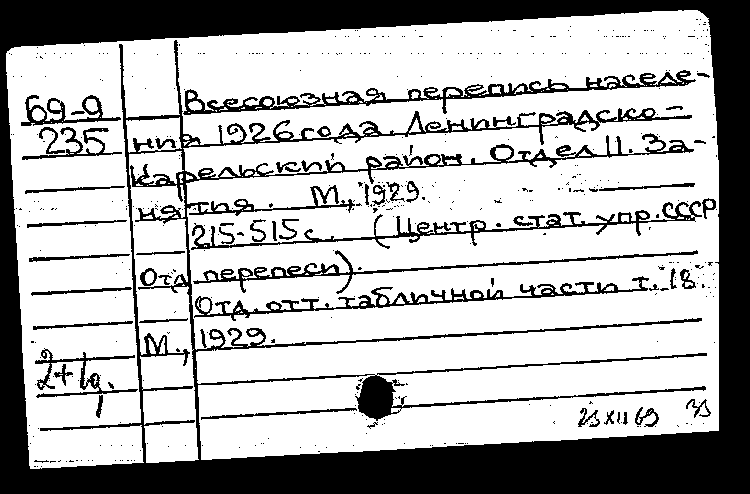 69-9
235
Всесоюзная перепись населе-
ния 1926 года. Ленинградско-
Карельский район. Отдел II. За-
нятия. М., 1929.
215-515 с. (Центр. стат. упр. СССР
Отд. переписи).
Отд. отт. табличной части т. 18.
М., 1929.
2+1д.
23 XII 69